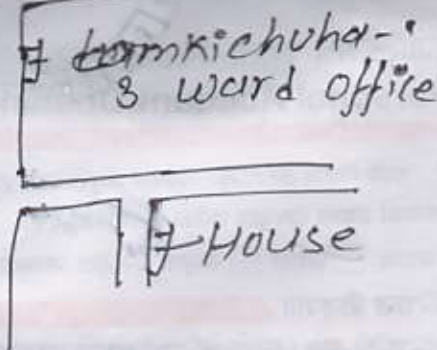 Lamkichuha-
3 ward office
House